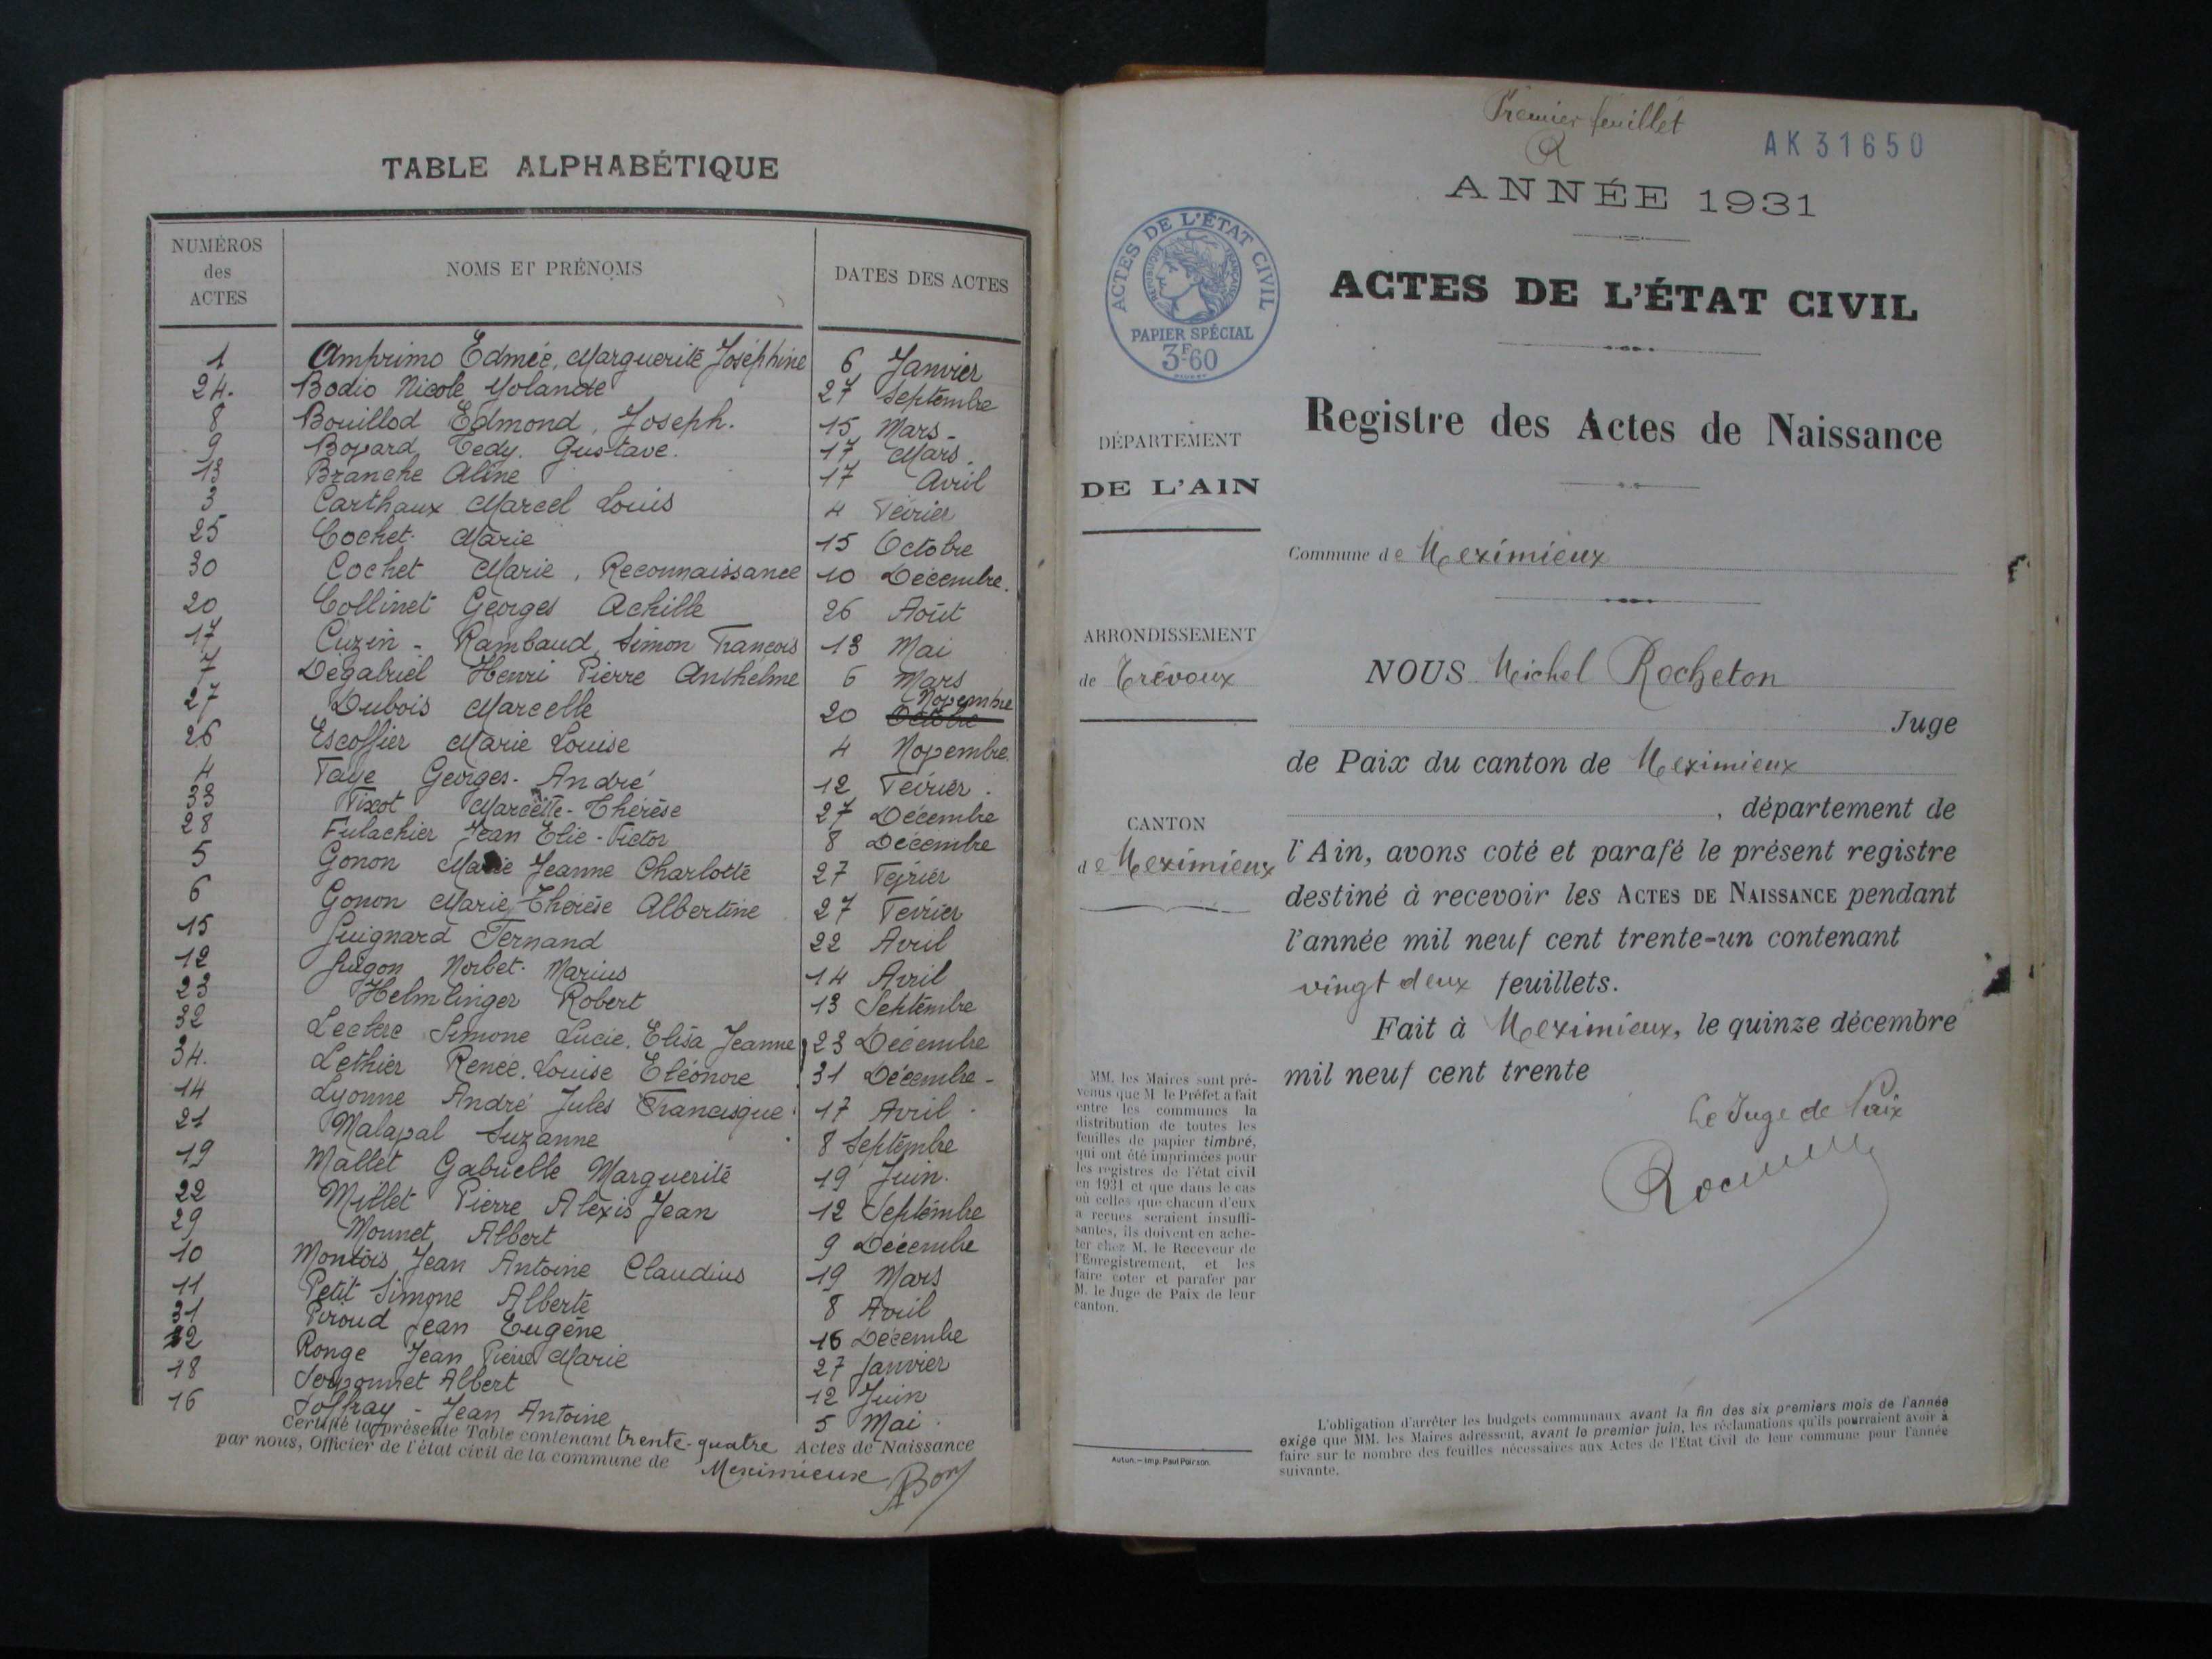 TABLE ALPHABÉTIQUE
NUMÉROS des ACTES NOMS ET PRÉNOMS DATES DES ACTES
1 Amprimo Edmée, Marguerite Joséphine 6 Janvier
24. Bodio Nicole Yolande 27 Septembre
8 Bouillod Edmond, Joseph. 15 Mars
9 Bovard Tedy. Gustave. 17 Mars.
13 Branche Aline 17 Avril
3 Carthaux Marcel Louis 4 Février
25 Cochet Marie 15 Octobre
30 Cochet Marie, Reconnaissance 10 Décembre.
20 Collinet Georges Achille 26 Août
17 Cuzin - Rambaud, Simon François 13 Mai
7 Degabriel Henri Pierre Anthelme 6 Mars
27 Dubois Marcelle 20 Octobre Novembre
26 Escoffier Marie Louise 4 Novembre.
4 Faye Georges-André 12 Février.
33 Fixot Marcelle-Thérèse 27 Décembre
28 Fulachier Jean Elie-Victor 8 Décembre
5 Gonon Marie Jeanne Charlotte 27 Février
6 Gonon Marie Thérèse Albertine 27 Février
15 Guignard Fernand 22 Avril
12 Gugon Norbet. Marius 14 Avril
23 Helmlinger Robert 13 Septembre
32 Leclerc Simone Lucie. Elisa Jeanne 23 Décembre
34. Lethier Renée. Louise Eléonore 31 Décembre -
14 Lyonne André Jules Francisque 17 Avril.
21 Malaval Suzanne 8 Septembre
19 Mallet Gabrielle Marguerite 19 Juin.
22 Millet Pierre Alexis Jean 12 Septembre
29 Monnet Albert 9 Décembre
10 Montois Jean Antoine Claudius 19 Mars
11 Petit Simone Alberte 8 Avril
31 Piroud Jean Eugène 16 Décembre
2 Ronge Jean Pierre Marie 27 Janvier
18 Albert 12 Juin
16 Joffray - Jean Antoine 5 Mai
Certifié la présente Table contenant trente-quatre Actes de Naissance
par nous, Officier de l'état civil de la commune de Meximieux
Premier feuillet
R
AK 31650
ANNÉE 1931
ACTES DE L'ÉTAT CIVIL
RÉPUBLIQUE FRANÇAISE
PAPIER SPÉCIAL
3F60
ACTES DE L'ÉTAT CIVIL
Registre des Actes de Naissance
DÉPARTEMENT
DE L'AIN
Commune de Meximieux
ARRONDISSEMENT
de Trévoux
CANTON
de Meximieux
NOUS Michel Rocheton
Juge
de Paix du canton de Meximieux
, département de
l'Ain, avons coté et parafé le présent registre
destiné à recevoir les ACTES DE NAISSANCE pendant
l'année mil neuf cent trente-un contenant
vingt deux feuillets.
Fait à Meximieux, le quinze décembre
mil neuf cent trente
Le Juge de Paix
MM. les Maires sont pré-
venus que M le Préfet a fait
entre les communes la
distribution de toutes les
feuilles de papier timbré,
qui ont été imprimées pour
les registres de l'état civil
en 1931 et que dans le cas
où celles que chacun d'eux
a reçues seraient insuffi-
santes, ils doivent en ache-
ter chez M. le Receveur de
l'Enregistrement, et les
faire coter et parafer par
M. le Juge de Paix de leur
canton.
Autun. — Imp. Paul Poirson.
L'obligation d'arrêter les budgets communaux avant la fin des six premiers mois de l'année
exige que MM. les Maires adressent, avant le premier juin, les réclamations qu'ils pourraient avoir à
faire sur le nombre des feuilles nécessaires aux Actes de l'État Civil de leur commune pour l'année
suivante.